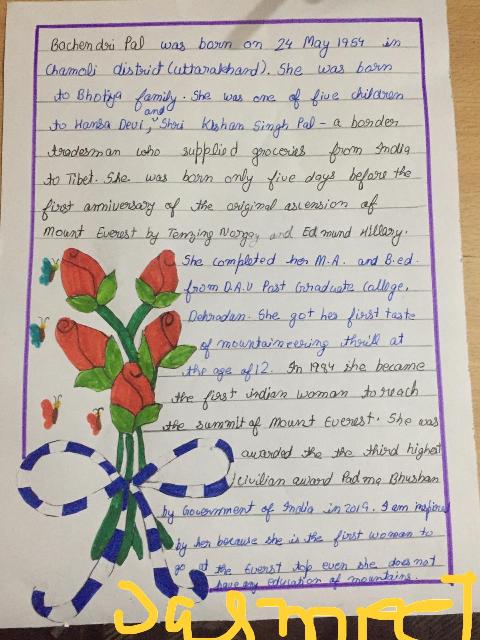 Bachendri Pal was born on 24 May 1954 in
Chamoli district (uttarakhand). She was born
to Bhotiya family. She was one of five children
to Hansa Devi, and Shri Kishan Singh Pal - a border
tradesman who supplied groceries from India
to Tibet. She was born only five days before the
first anniversary of the original ascension of
Mount Everest by Tenzing Norgey and Edmund Hillary.
She completed her M.A. and B.ed.
from D.A.V Post Graduate College,
Dehradan. She got her first taste
of mountaineering thrill at
the age of 12. In 1984 she became
the first indian woman to reach
the summit of Mount Everest. She was
awarded the the third highest
civilian award Padma Bhushan
by Government of India in 2019. I am inspired
by her because she is the first woman to
go at the Everst top even she does not
have any education of mountains.
Jasmeet